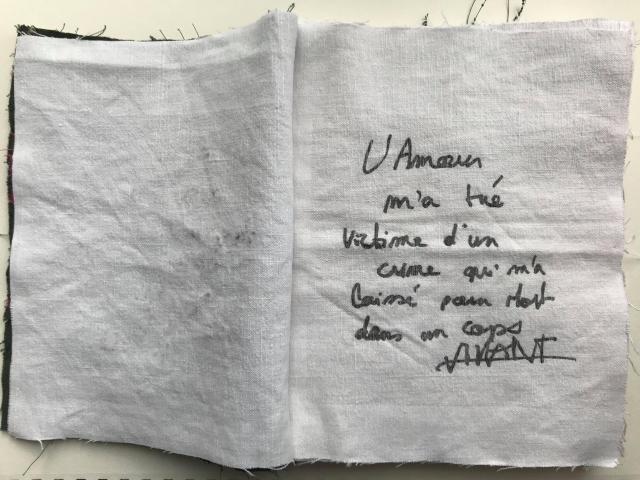 L'Amour
m'a tué
victime d'un
crime qui m'a
laissé pour Mort
dans un corps
VIVANT